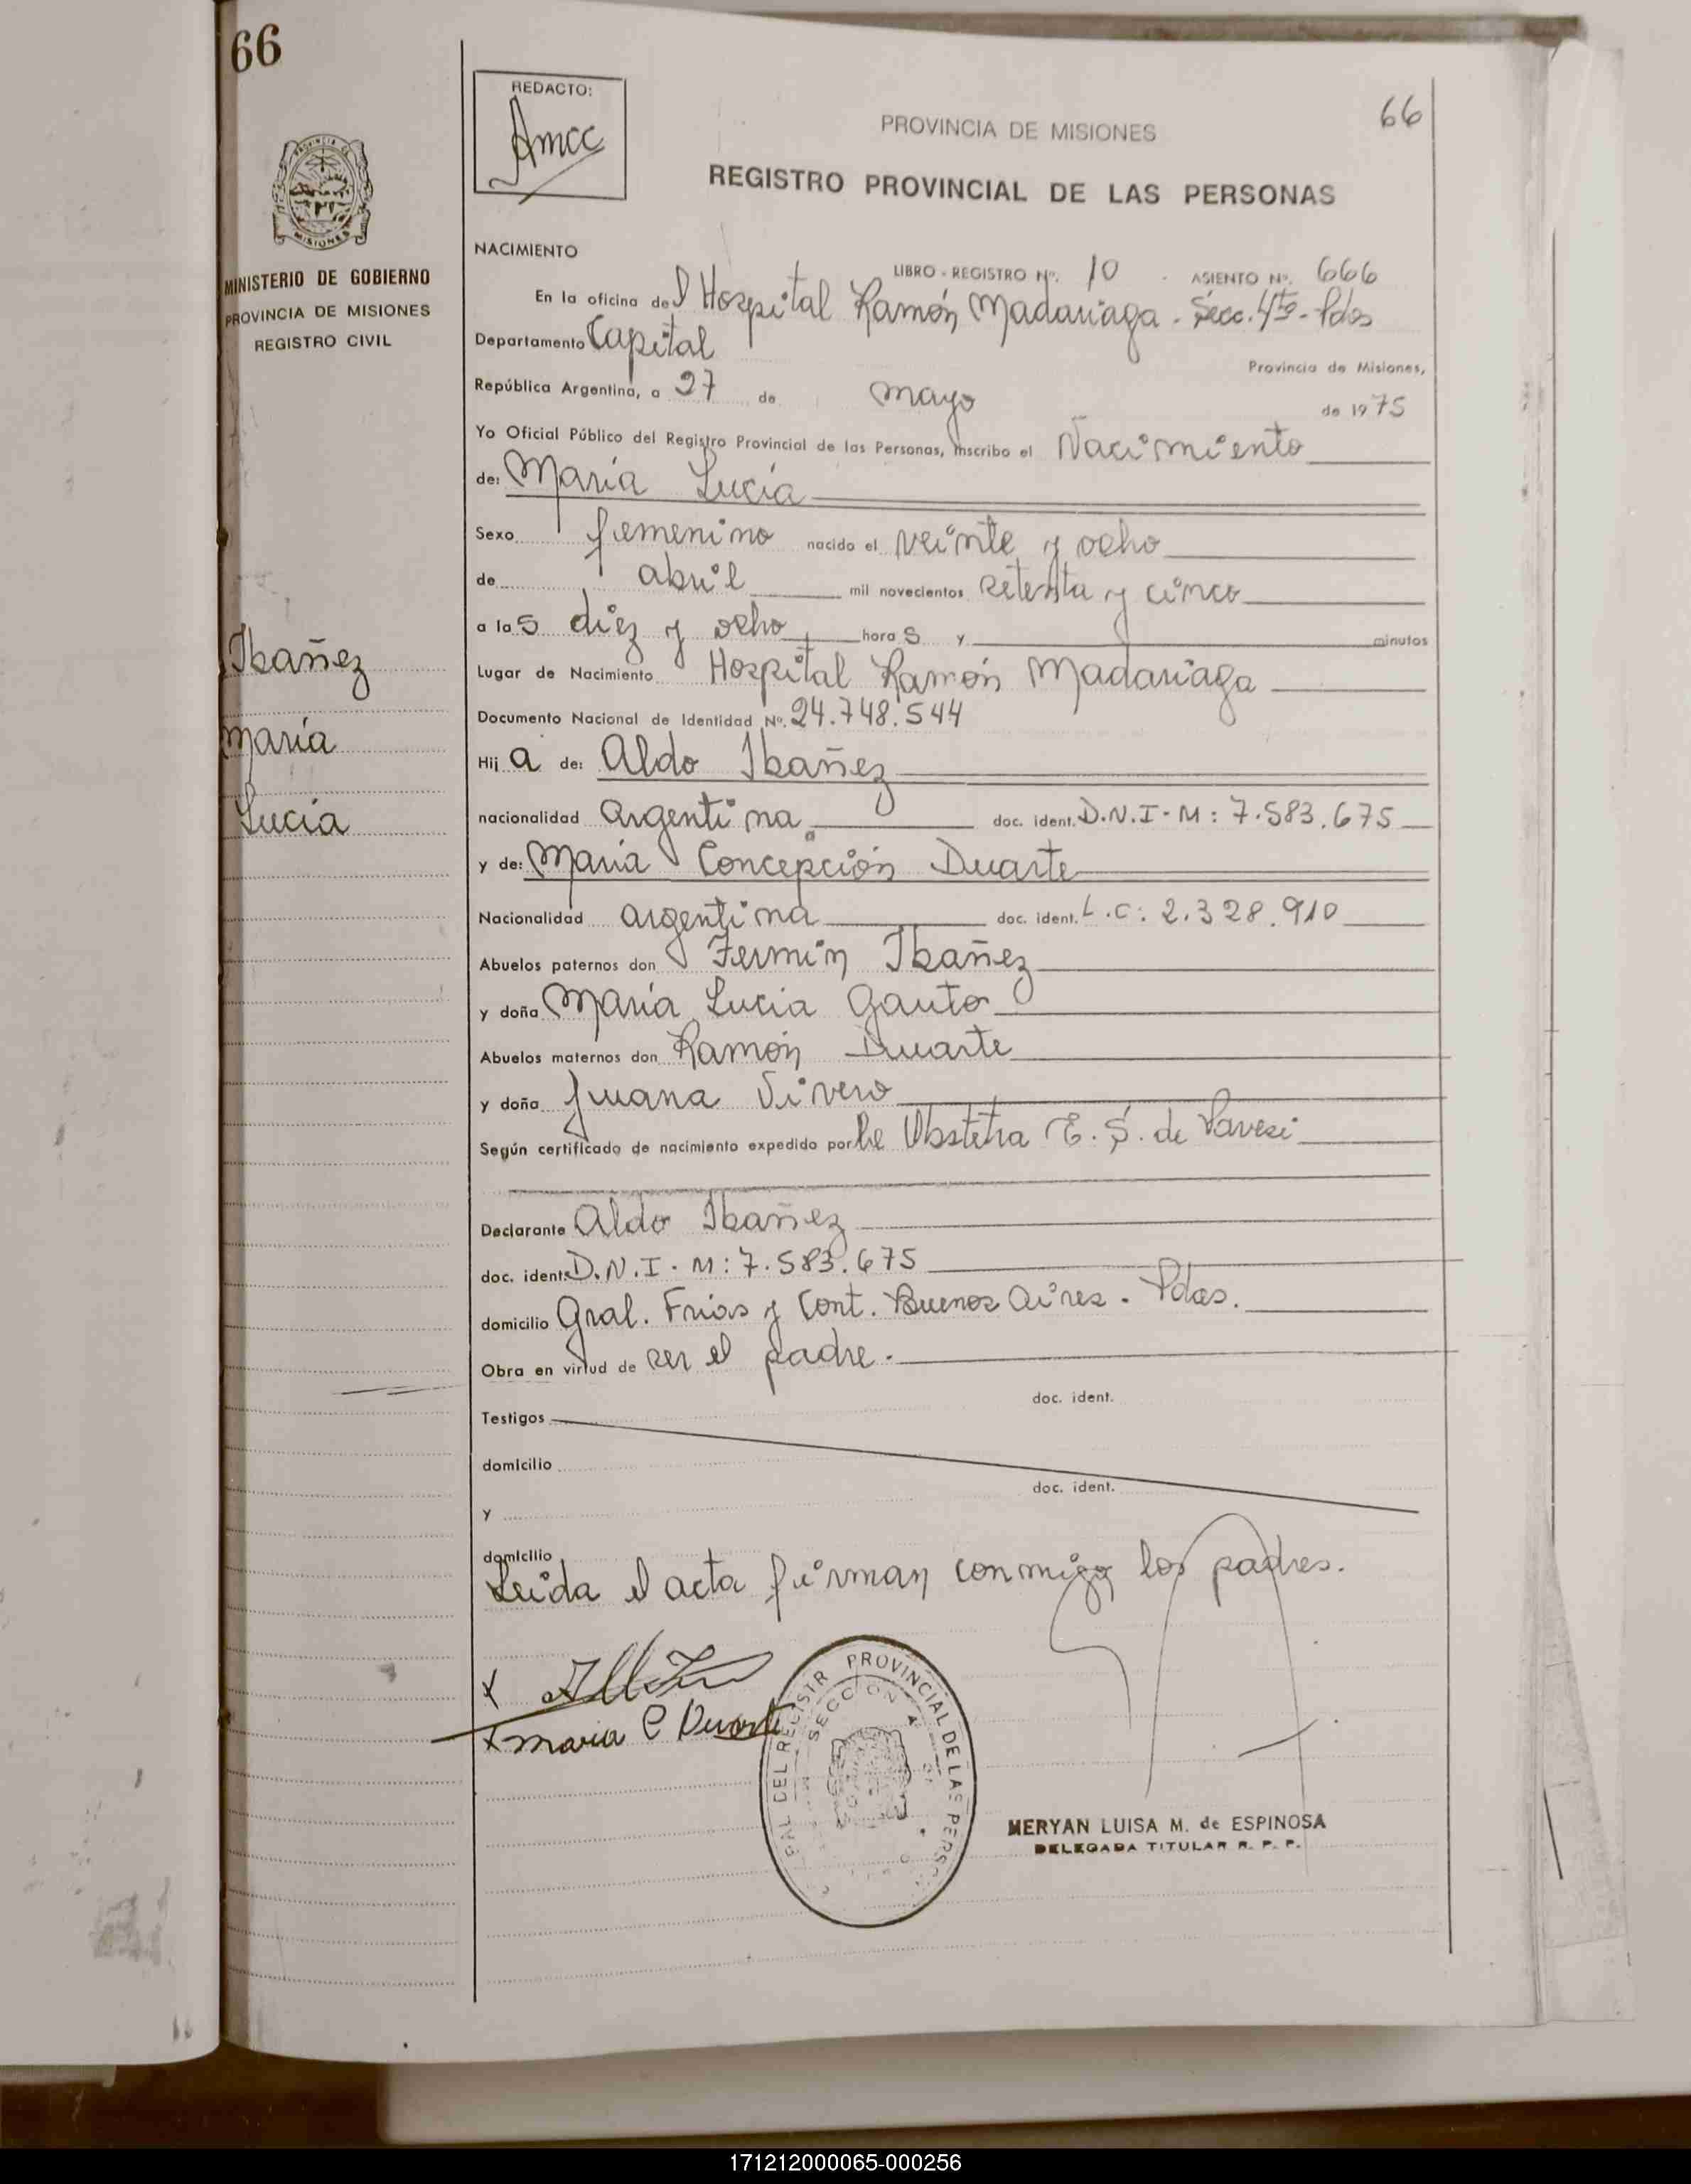 66
REDACTO:
Amcc
66
PROVINCIA DE MISIONES
REGISTRO PROVINCIAL DE LAS PERSONAS
MISIONES
MINISTERIO DE GOBIERNO
PROVINCIA DE MISIONES
REGISTRO CIVIL
NACIMIENTO
LIBRO - REGISTRO Nº. 10 - ASIENTO Nº. 666
En la oficina del Hospital Ramón Madariaga - Secc. 4ta - Pdas
Departamento Capital
Provincia de Misiones,
República Argentina, a 27 de mayo de 1975
Yo Oficial Público del Registro Provincial de las Personas, inscribo el Nacimiento
de: María Lucía
Sexo femenino nacido el veinte y ocho
de abril mil novecientos setenta y cinco
a las diez y ocho horas y minutos
Ibañez
María
Lucía
Lugar de Nacimiento Hospital Ramón Madariaga
Documento Nacional de Identidad Nº. 24.748.544
Hija de: Aldo Ibañez
nacionalidad argentina doc. ident. D.N.I-M: 7.583.675
y de: María Concepción Duarte
Nacionalidad argentina doc. ident. L.C: 2.328.910
Abuelos paternos don Fermín Ibañez
y doña María Lucia Gauto
Abuelos maternos don Ramón Duarte
y doña Juana Vivero
Según certificado de nacimiento expedido por la Obstetra E. S. de Pavesi
Declarante Aldo Ibañez
doc. ident: D.N.I. M: 7.583.675
domicilio Gral. Frias y Cont. Buenos Aires - Pdas.
Obra en virtud de ser el padre.
doc. ident.
Testigos
domicilio
doc. ident.
y
domicilio
Leida el acta firman conmigo los padres.
x
x maria C Duarte
PAL DEL REGISTR PROVINCIAL DE LAS PERSO
SECCION 4
MERYAN LUISA M. de ESPINOSA
DELEGADA TITULAR R. P. P.
171212000065-000256